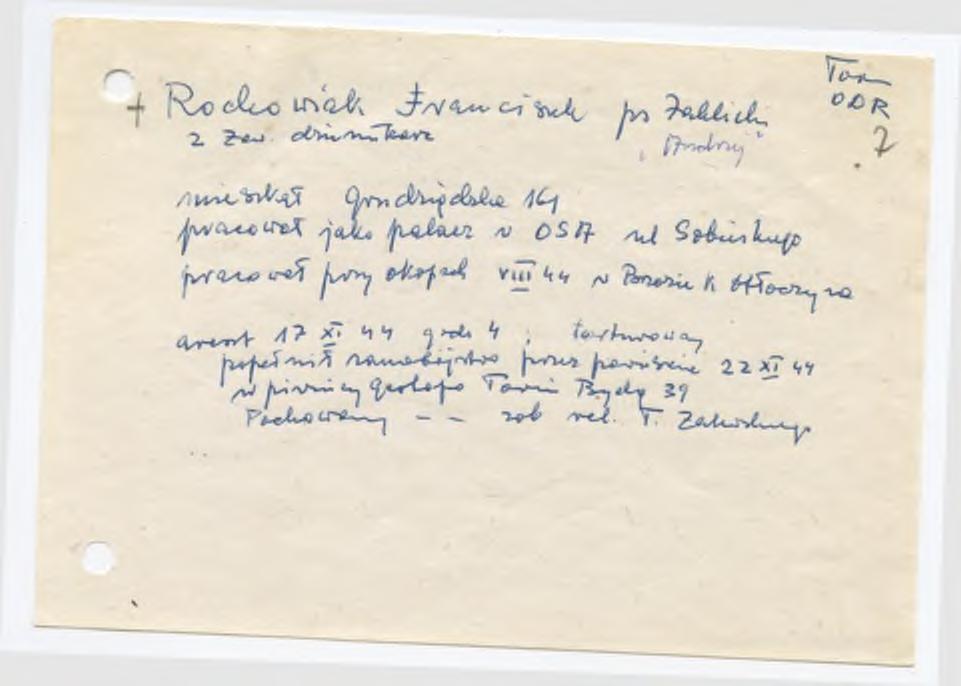 Toruń
ODR
7
+ Rochowiak Franciszek ps Zaklicki
z zaw. dziennikarz "Andrzej"
mieszkał Grudziądzka 161
pracował jako palacz w OSA ul Sobieskiego
pracował przy okopach VIII 44 w Brzozie k Otłoczyna
areszt 17 XI 44 godz 4; torturowany
popełnił samobójstwo przez powieszenie 22 XI 44
w piwnicy gestapo Toruń Bydg 39
Pochowany -- zob rel. T. Zakrzewskiego